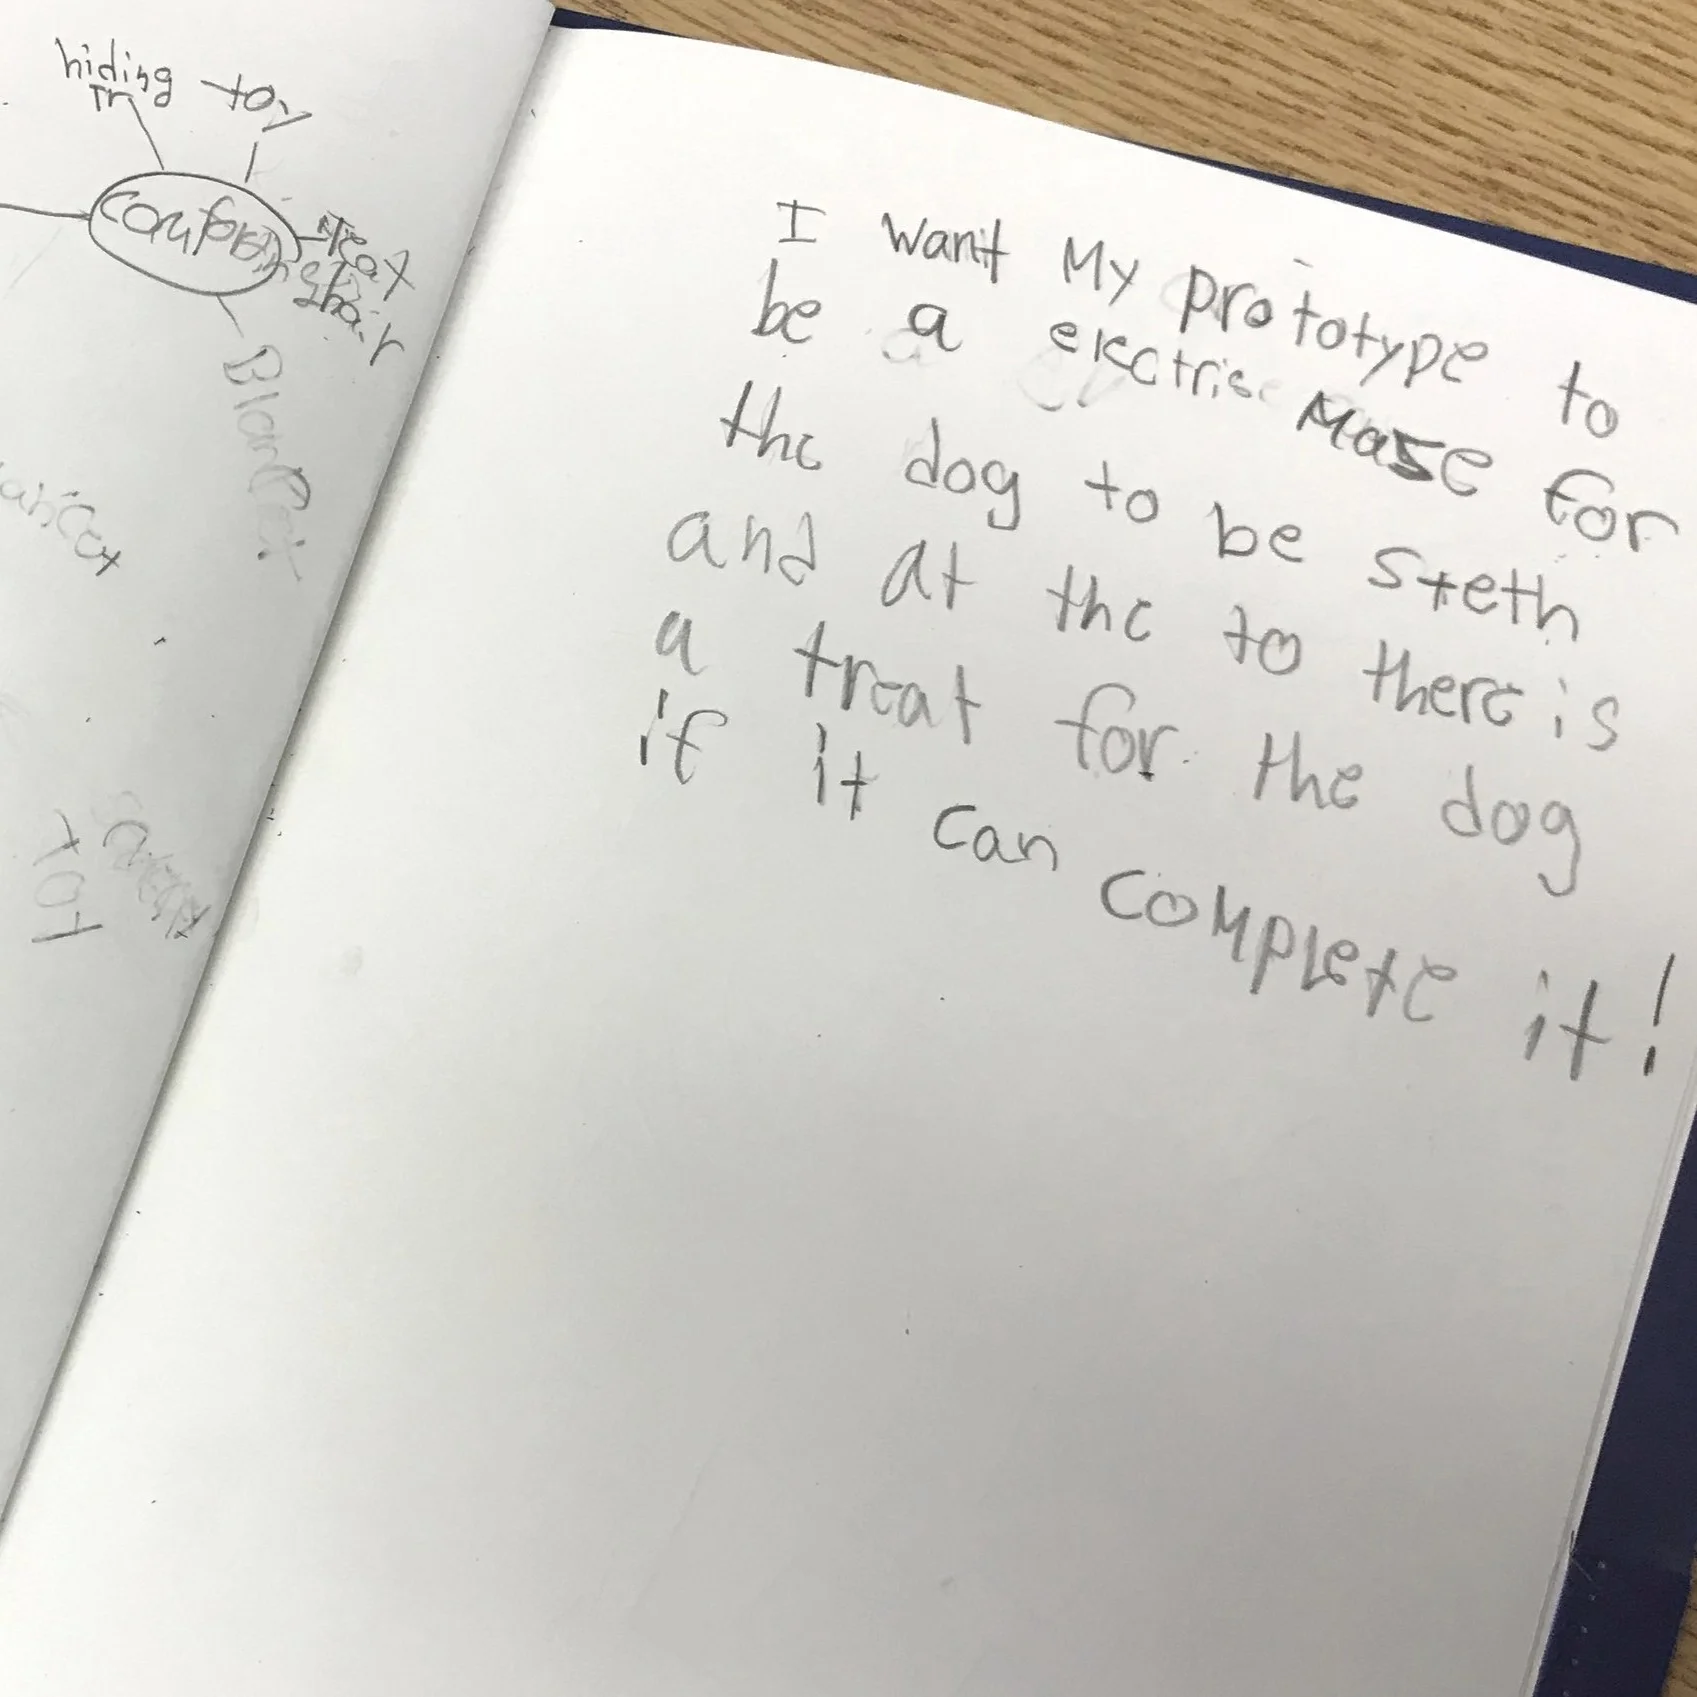 hiding toy
In
comforting
treat
chair
Blanket
TOY
I want My prototype to
be a electris Mase for
the dog to be steth
and at the to there is
a treat for the dog
if it can complete it!